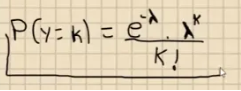 P(y=k) = \frac{e^{-λ} \cdot λ^k}{k!}